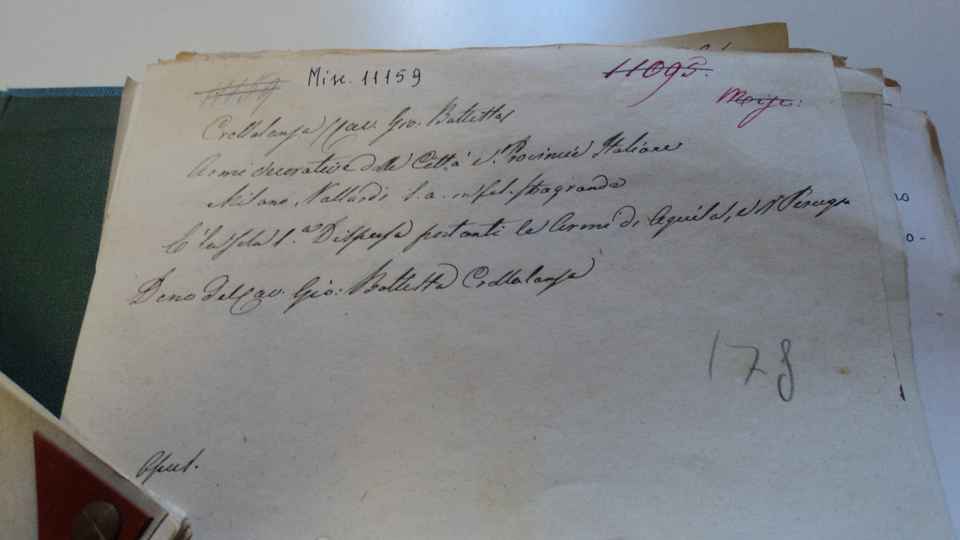 11159 Misc. 11159 11095.
Crollalanza Cav. Gio. Battista
Armi decorative delle Città e Provincie Italiane
Milano, Vallardi s. a. in fol. stragrande
È la sola 1.a Dispensa portanti le Armi di Aquila, e di Perugia
Dono del Cav. Gio: Battista Crollalanza
178
Opus.